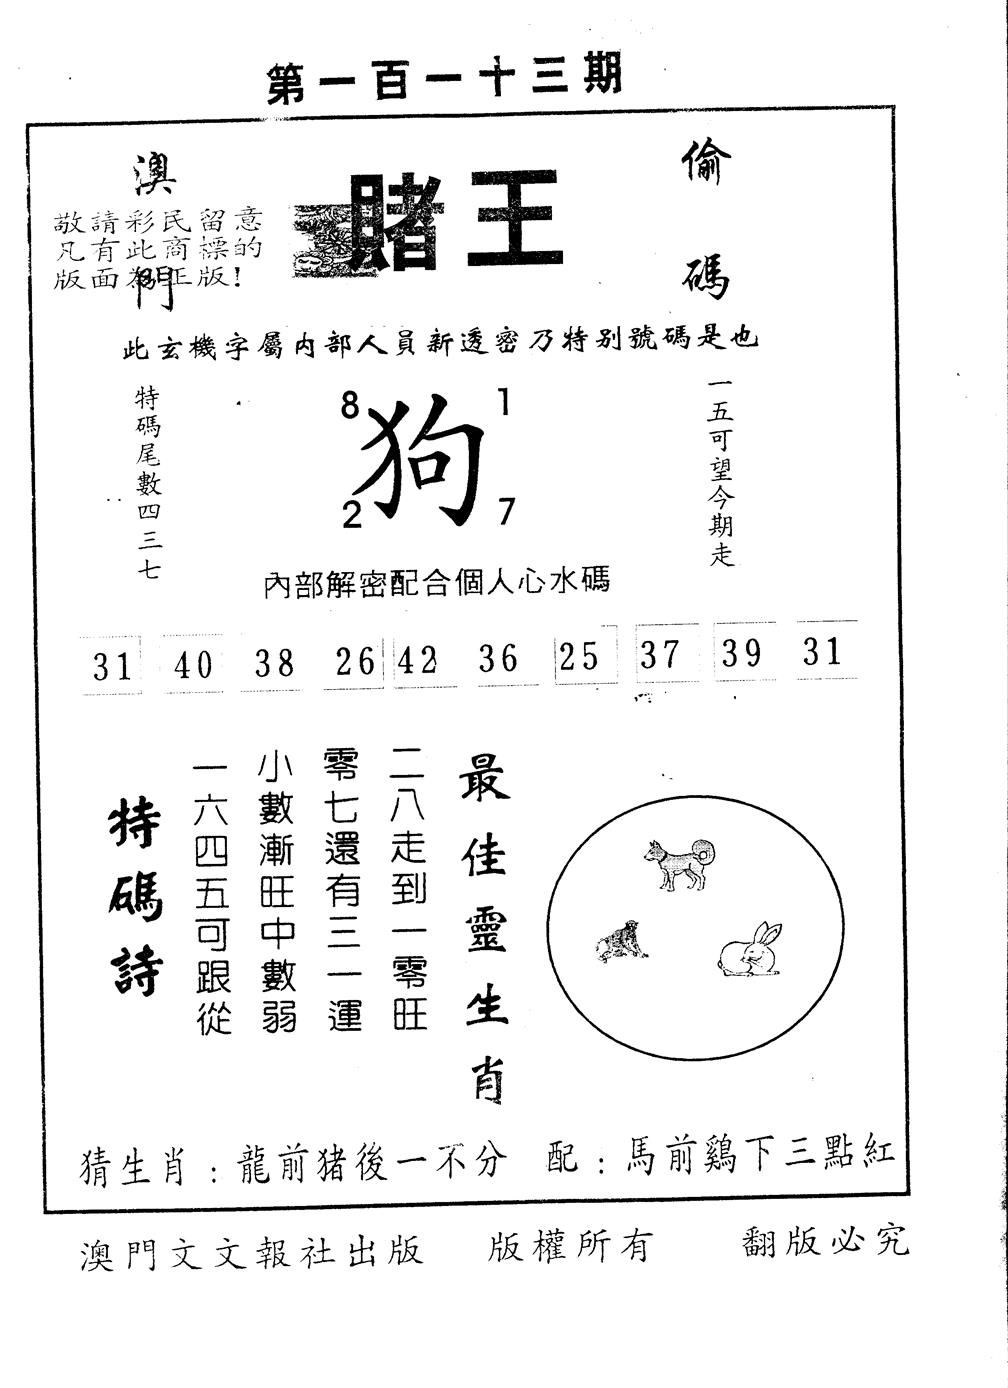 第一百一十三期
澳門
賭王
偷碼
敬請彩民留意
凡有此商標的
版面為正版!
此玄機字屬内部人員新透密乃特别號碼是也
特碼尾數四三七
8 1
狗
2 7
一五可望今期走
內部解密配合個人心水碼
31 40 38 26 42 36 25 37 39 31
最佳靈生肖
二八走到一零旺
零七還有三一運
小數漸旺中數弱
一六四五可跟從
特碼詩
猜生肖:龍前猪後一不分 配:馬前鷄下三點紅
澳門文文報社出版 版權所有 翻版必究